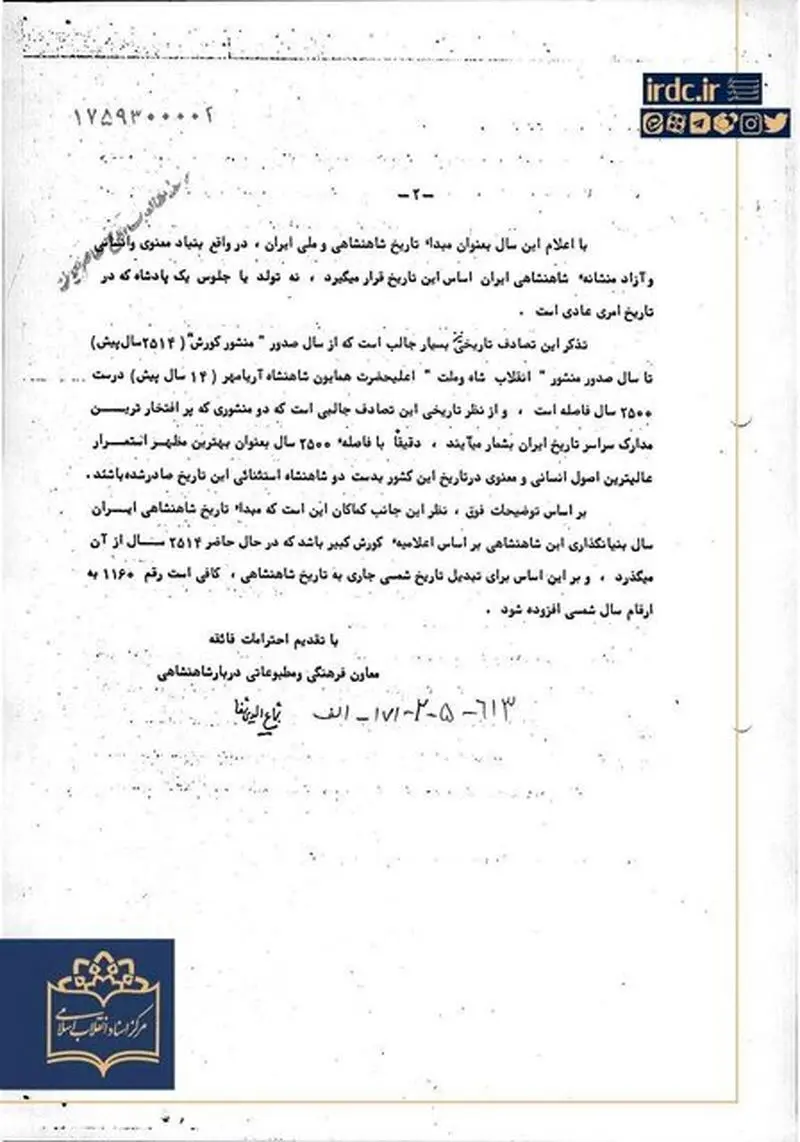 irdc.ir
۱۷۵۹۳۰۰۰۰۲
-۲-
با اعلام این سال بعنوان مبداء تاریخ شاهنشاهی و ملی ایران ، در واقع بنیاد معنوی وانسانی
وآزاد منشانهٔ شاهنشاهی ایران اساس این تاریخ قرار میگیرد ، نه تولد یا جلوس یک پادشاه که در
تاریخ امری عادی است .
تذکر این تصادف تاریخی نیز بسیار جالب است که از سال صدور " منشور کورش" ( ۲۵۱۴سال پیش)
تا سال صدور منشور " انقلاب شاه وملت " اعلیحضرت همایون شاهنشاه آریامهر ( ۱۴ سال پیش) درست
۲۵۰۰ سال فاصله است ، و از نظر تاریخی این تصادف جالبی است که دو منشوری که پر افتخار ترین
مدارک سراسر تاریخ ایران بشمار میآیند ، دقیقاً با فاصلهٔ ۲۵۰۰ سال بعنوان بهترین مظهر استمرار
عالیترین اصول انسانی و معنوی درتاریخ این کشور بدست دو شاهنشاه استثنائی این تاریخ صادرشده‌باشند .
بر اساس توضیحات فوق ، نظر این جانب کماکان این است که مبداء تاریخ شاهنشاهی ایران
سال بنیانگذاری این شاهنشاهی بر اساس اعلامیهٔ کورش کبیر باشد که در حال حاضر ۲۵۱۴ سال از آن
میگذرد ، و بر این اساس برای تبدیل تاریخ شمسی جاری به تاریخ شاهنشاهی ، کافی است رقم ۱۱۶۰ به
ارقام سال شمسی افزوده شود .
با تقدیم احترامات فائقه
معاون فرهنگی ومطبوعاتی دربارشاهنشاهی
شجاع الدین شفا
۶۱۳-۵-۲-۱۷۱-الف
مرکز اسناد انقلاب اسلامی